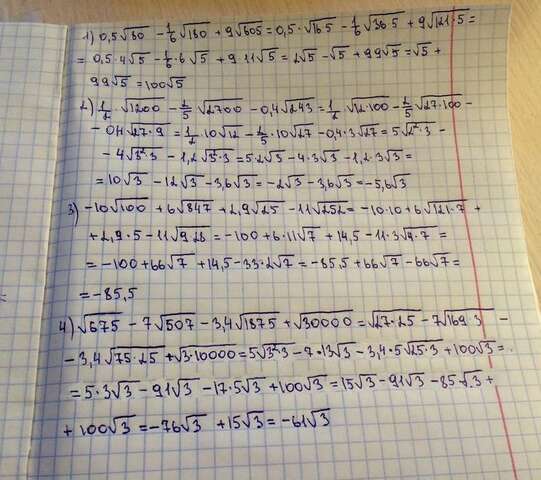 1) 0,5√80 − 1/6√180 + 9√605 = 0,5·√16·5 − 1/6√36·5 + 9√121·5 =
= 0,5·4√5 − 1/6·6√5 + 9·11√5 = 2√5 − √5 + 99√5 = √5 +
99√5 = 100√5
2) 1/2·√1200 − 2/5√2700 − 0,4√243 = 1/2√12·100 − 2/5√27·100 −
− 0,4√27·9 = 1/2·10√12 − 2/5·10√27 − 0,4·3√27 = 5√2²·3 −
− 4√3²·3 − 1,2√3²·3 = 5·2√3 − 4·3√3 − 1,2·3√3 =
= 10√3 − 12√3 − 3,6√3 = −2√3 − 3,6√3 = −5,6√3
3) −10√100 + 6√847 + 2,9√25 − 11√252 = −10·10 + 6√121·7 +
+ 2,9·5 − 11√9·28 = −100 + 6·11√7 + 14,5 − 11·3√4·7 =
= −100 + 66√7 + 14,5 − 33·2√7 = −85,5 + 66√7 − 66√7 =
= −85,5
4) √675 − 7√507 − 3,4√1875 + √30000 = √27·25 − 7√169·3 −
− 3,4√75·25 + √3·10000 = 5√3²·3 − 7·13√3 − 3,4·5√25·3 + 100√3 =
= 5·3√3 − 91√3 − 17·5√3 + 100√3 = 15√3 − 91√3 − 85√3 +
+ 100√3 = −76√3 + 15√3 = −61√3